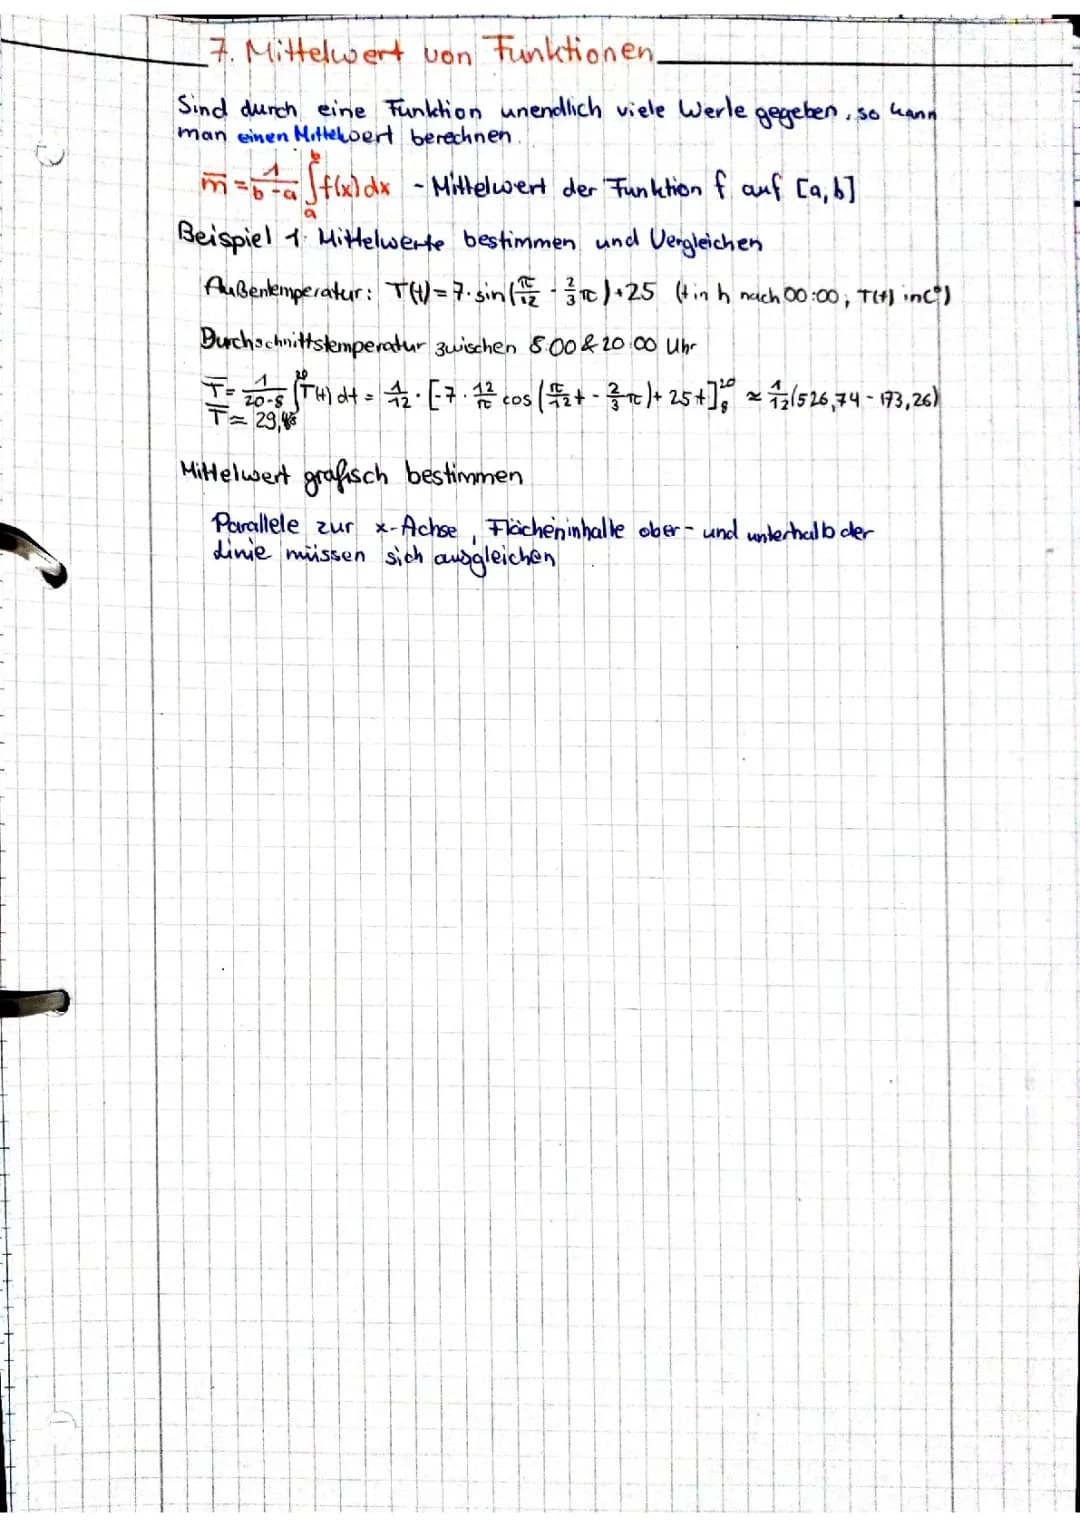 7. Mittelwert von Funktionen
Sind durch eine Funktion unendlich viele Werte gegeben, so kann
man einen Mittelwert berechnen.
m̅ = 1/(b-a) ∫_a^b f(x) dx - Mittelwert der Funktion f auf [a,b]
Beispiel 1: Mittelwerte bestimmen und Vergleichen
Außentemperatur: T(t) = 7·sin(π/12 - 2/3 π) + 25 (t in h nach 00:00, T(t) in C°)
Durchschnittstemperatur zwischen 8:00 & 20:00 Uhr
T̅ = 1/(20-8) ∫^20 T(t) dt = 1/12 · [-7 · 12/π cos (π/12 t - 2/3 π) + 25t]_8^20 ≈ 1/12 (526,74 - 173,26)
T̅ ≈ 29,46
Mittelwert grafisch bestimmen
Parallele zur x-Achse, Flächeninhalte ober- und unterhalb der
Linie müssen sich ausgleichen